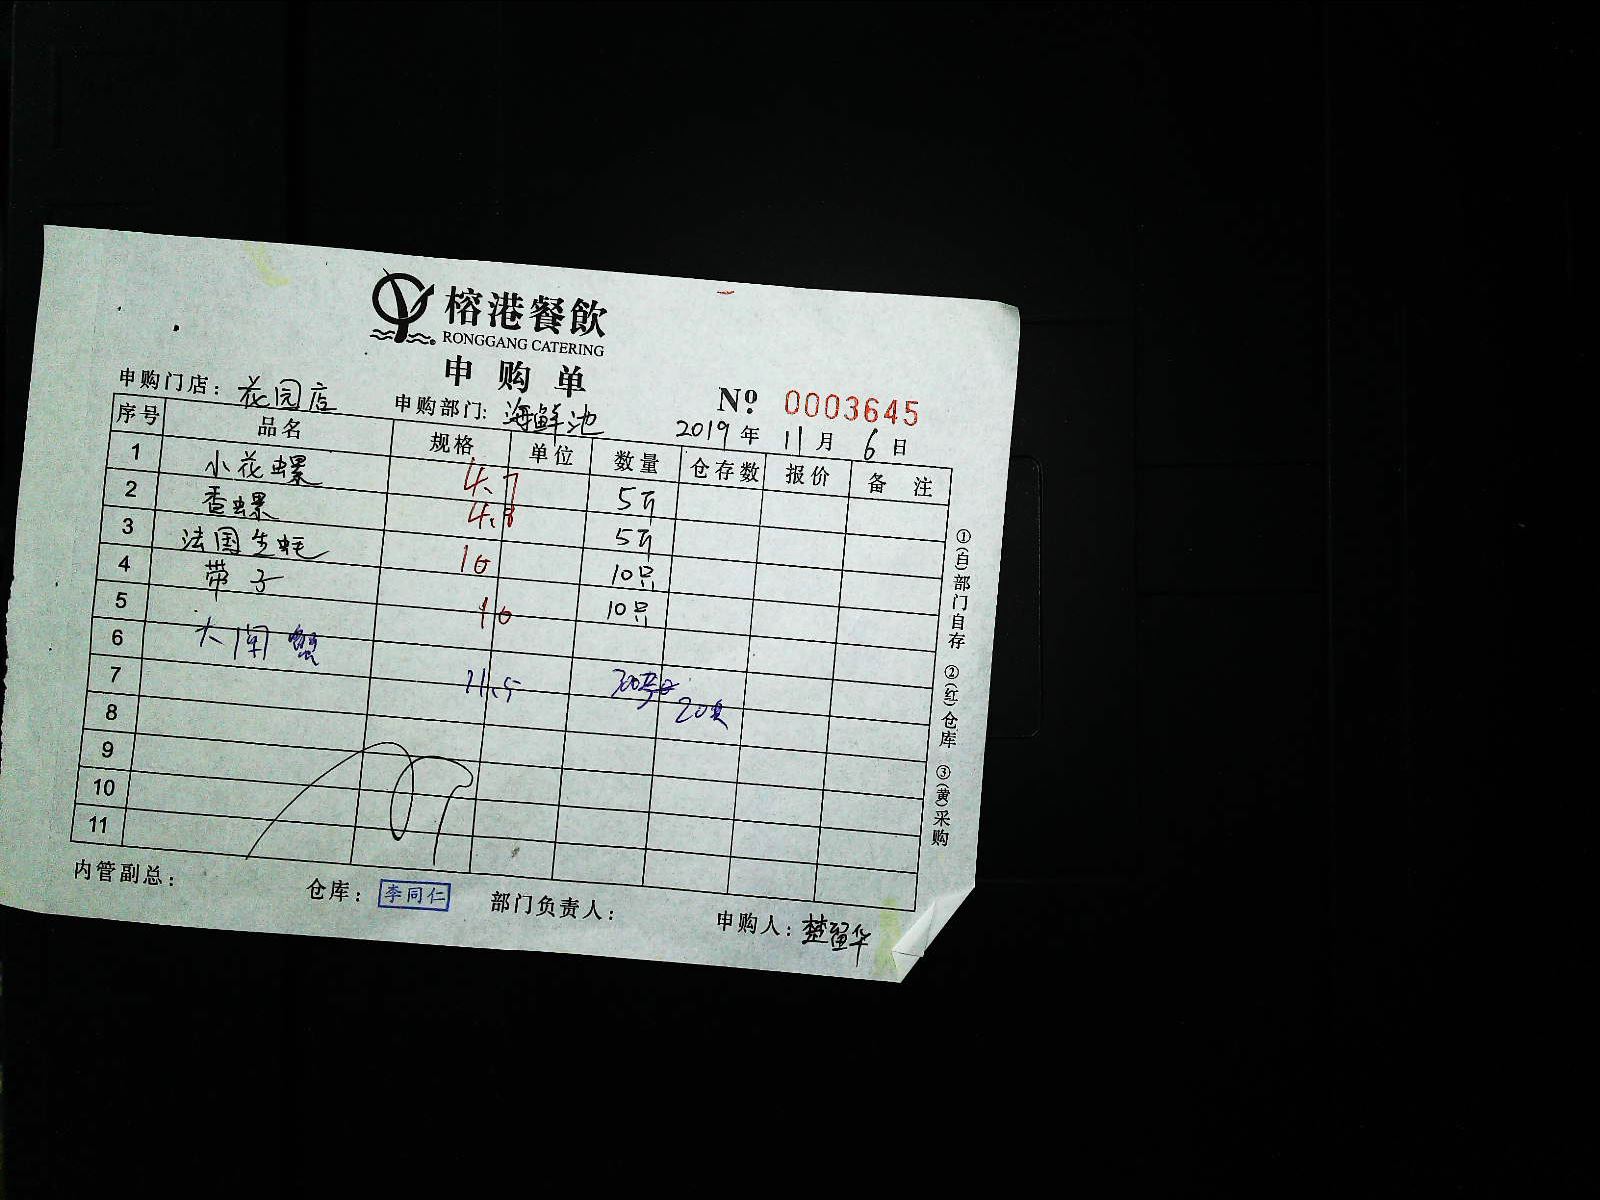 榕港餐飲
RONGGANG CATERING
申购单
申购门店：花园店 申购部门：海鲜池 Nº 0003645
2019年 11月 6日
序号 品名 规格 单位 数量 仓存数 报价 备注
1 小花螺 4.7 5斤
2 香螺 4.8 5斤
3 法国生蚝 10 10只
4 带子 10 10只
5
6 大闸蟹 21.5 20只
7
8
9
10
11
内管副总： 仓库：李同仁 部门负责人： 申购人：楚留华
①(白)部门自存 ②(红)仓库 ③(黄)采购